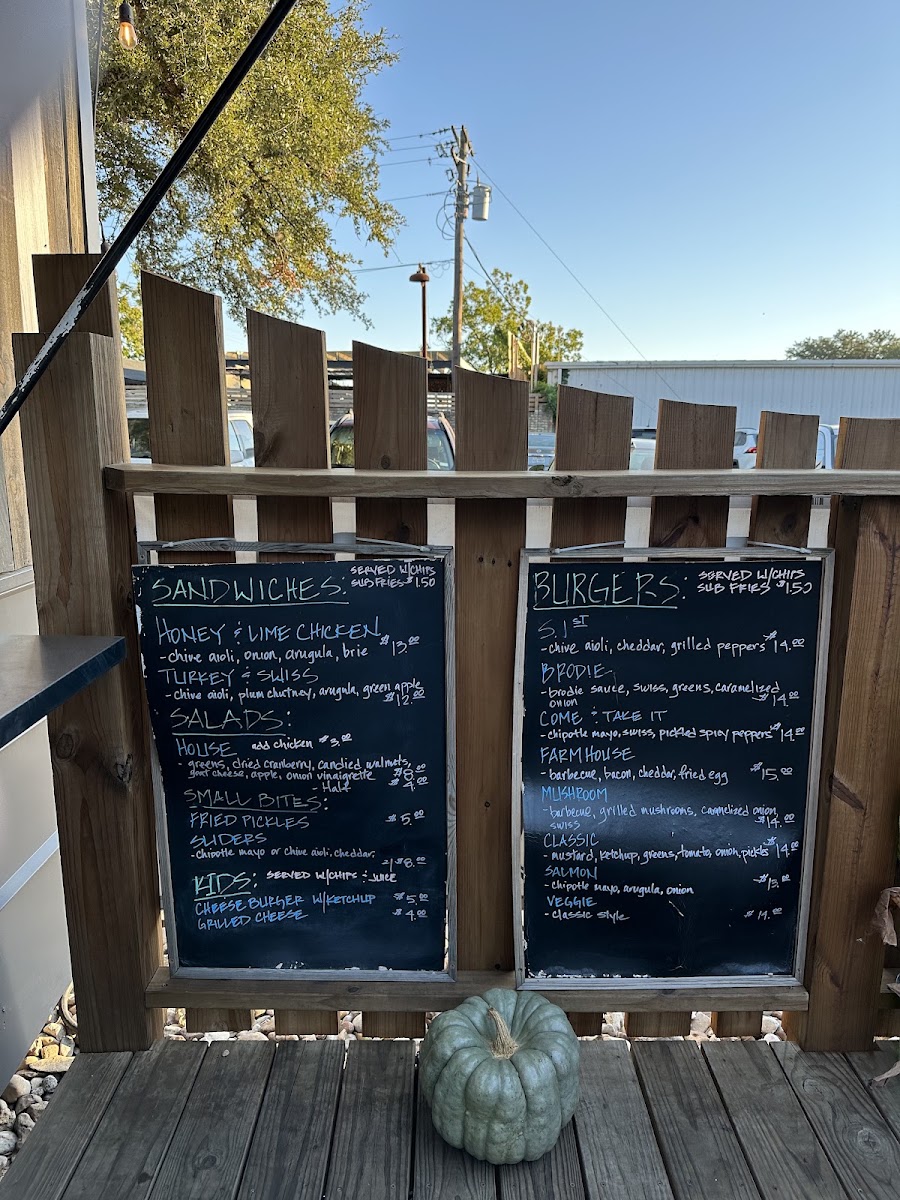 SANDWICHES: SERVED W/CHIPS
SUB FRIES $1.50
HONEY & LIME CHICKEN
-chive aioli, onion, arugula, brie $13.00
TURKEY & SWISS
-chive aioli, plum chutney, arugula, green apple
$12.00
SALADS:
HOUSE add chicken $3.00
- greens, dried cranberry, candied walnuts,
goat cheese, apple, onion vinaigrette $8.00
- Half $4.00
SMALL BITES:
FRIED PICKLES $5.00
SLIDERS
-chipotle mayo or chive aioli, cheddar,
2/$8.00
KIDS: SERVED W/CHIPS & JUICE
CHEESE BURGER W/KETCHUP $5.00
GRILLED CHEESE $4.00
BURGERS: SERVED W/CHIPS
SUB FRIES $1.50
S. 1ST
-chive aioli, cheddar, grilled peppers $14.00
BRODIE
-brodie sauce, swiss, greens, caramelized
onion $14.00
COME & TAKE IT
-chipotle mayo, swiss, pickled spicy peppers $14.00
FARMHOUSE
-barbecue, bacon, cheddar, fried egg $15.00
MUSHROOM
-barbecue, grilled mushrooms, caramelized onion,
swiss $14.00
CLASSIC
-mustard, ketchup, greens, tomato, onion, pickles $14.00
SALMON
-chipotle mayo, arugula, onion
VEGGIE
-classic style $14.00